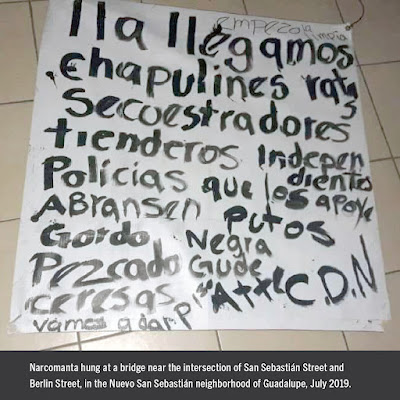 empezo la
11a llegamos
chapulines ratas
secoestradores
tienderos Indepen
dientes
Policias que los apoye
ABransen putos
Gordo Negra
Pezcado Gude
ceresas
vamos a dar p'
Atte C.D.N
Narcomanta hung at a bridge near the intersection of San Sebastián Street and
Berlin Street, in the Nuevo San Sebastián neighborhood of Guadalupe, July 2019.